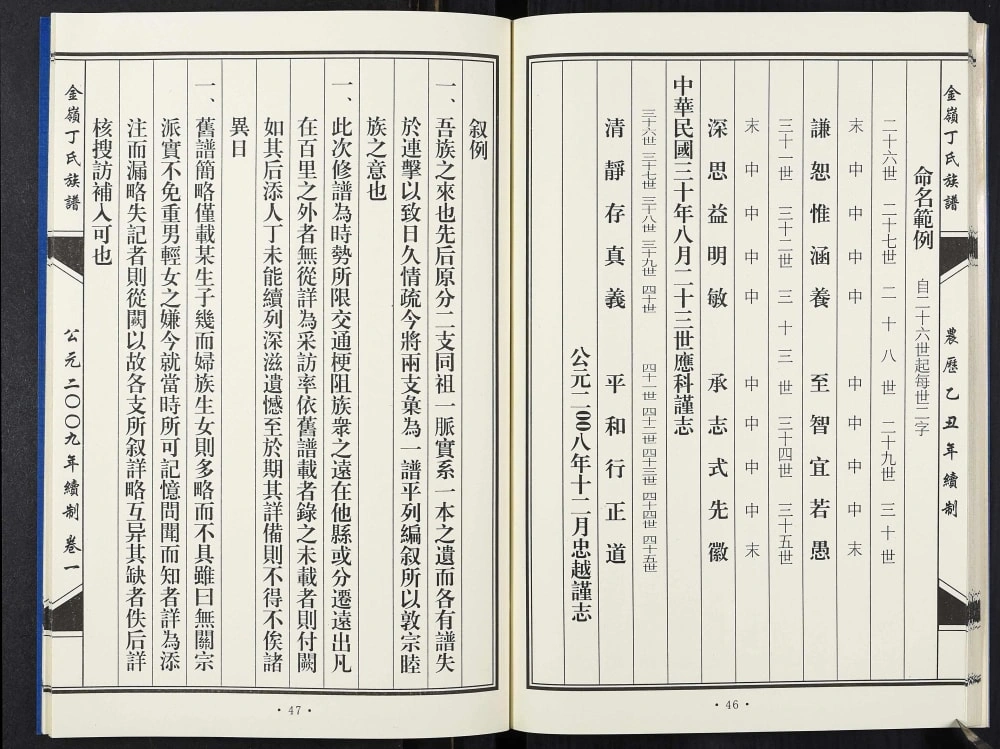 金嶺丁氏族譜 農歷乙丑年續制
命名範例 自二十六世起每世二字
二十六世 二十七世 二十八世 二十九世 三十世
末 中 中 中 中 中 中 末
謙恕惟涵養 至智宜若愚
三十一世 三十二世 三十三世 三十四世 三十五世
末 中 中 中 中 中 中 末
深思益明敏 承志式先徽
中華民國三十年八月二十三世應科謹志
三十六世 三十七世 三十八世 三十九世 四十世 四十一世 四十二世 四十三世 四十四世 四十五世
清靜存真義 平和行正道
公元二00八年十二月忠越謹志
·46·
叙例
一、吾族之來也先后原分二支同祖一脈實系一本之遺而各有譜失
於連擊以致日久情疏今將兩支彙為一譜平列編叙所以敦宗睦
族之意也
一、此次修譜為時勢所限交通梗阻族衆之遠在他縣或分遷遠出凡
在百里之外者無從詳為采訪率依舊譜載者錄之未載者則付闕
如其后添人丁未能續列深滋遺憾至於期其詳備則不得不俟諸
異日
一、舊譜簡略僅載某生子幾而婦族生女則多略而不具雖曰無關宗
派實不免重男輕女之嫌今就當時所可記憶問聞而知者詳為添
注而漏略失記者則從闕以故各支所叙詳略互异其缺者佚后詳
核搜訪補入可也
金嶺丁氏族譜 公元二〇〇九年續制 卷一
·47·